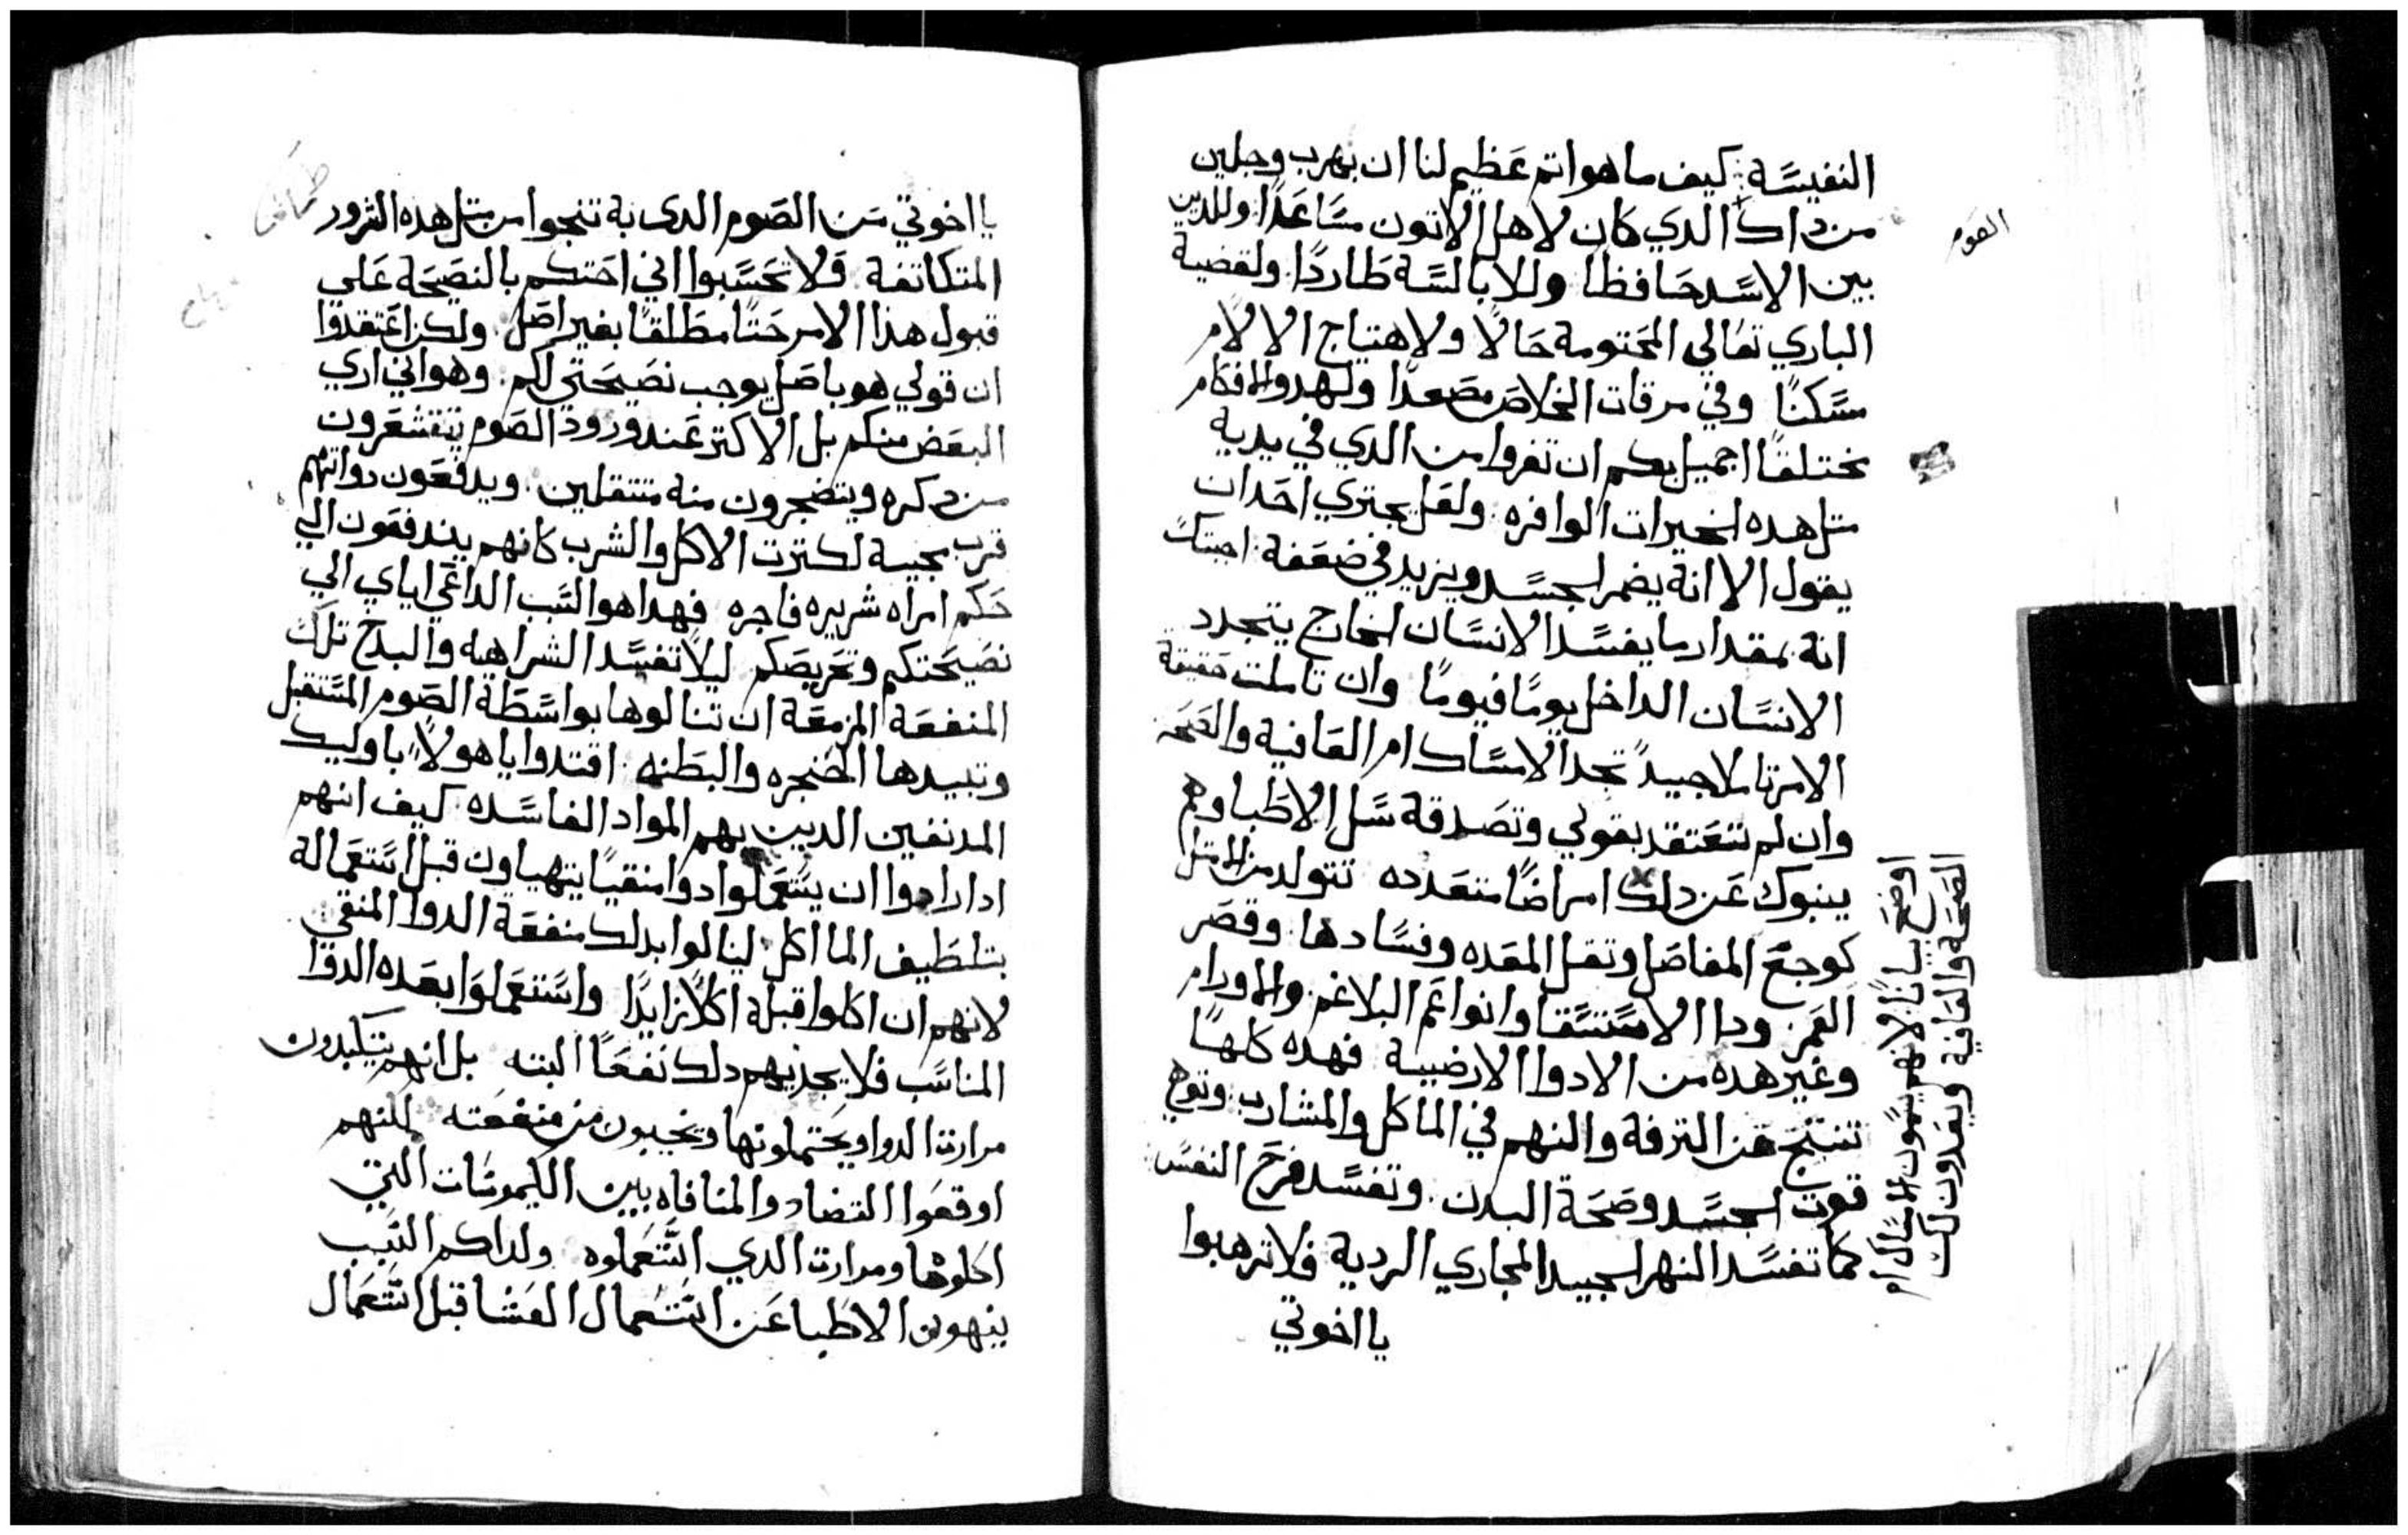 النفيسَة: كيف ما هو اتم عَظيم لنا ان نهرب وجلين
من داك الدي كان لاهل الاتون مسَاعَدًا وللدين
بين الاسَد حَافظا وللابالسَة طَاردًا. ولقضية
الباري تعَالي المحَتومة حَالًا ولاهتياج الالام
مسَكنًا وفي مرقات الخلاصَ مصَعدًا ولهدو الافكار
مختلقًا اجميل بكم ان تفروا من الدي في يديه
متل هده الخيرات الوافره: ولعَل يجتري احَدان
يقول الا انه يضمر الجسَد ويزيد في ضعَفة: اجبتك
انه بمقدار ما يفسَد الانسَان الخارج يتجدد
الانسَان الداخل يومًا فيومًا وان تاملت حَقيقة
الامر تاملا جييدً تجد الامسَاك ام العَافية والصَحَة
وان لم تعَتقد بقولي وتصَدقة سَل الاطَبا وهم
ينبوك عَن دلك امراضًا متعَدده تتولد من الامتلا
كوجعَ المفاصَل وتقل المعَده وفسَادها. وقصَر
العَمر. ودا الاسَتسَقا وانواعَ البلاغم. والاورام
وغير هده من الادوا الارضيية فهده كلها
تنتج عَن الترفة والنهم في الماكل والمشارب وتوهي
قوت الجسَد وصَحَة البدن. وتفسَد فرحَ النفسَ
كما تفسَد النهر الجييد المجاري الردية فلا ترهبوا
يا اخوتي
الصَوم
اوضحَ بيانًا لانهم يسَمون الامسَاك ام
الصَحَة والعَافية ويعَدون لك
يا اخوتي مَن الصَوم الدي به تنجوا من متل هده الشرور
المتكاتفة فَلا تحَسَبوا اني احَتكم بالنصَيحَة عَلي
قبول هذا الامر حَتًا مطَلقًا بغير اصَل. ولكن اعَتقدوا
ان قولي هو باصَل يوجب نصَيحَتي لكم. وهو اني اري
البعَض منكم بل الاكتر عَند ورود الصَوم يتقشعَرون
من دكره ويتضجرون منه متتقلين. ويدفعَون دواتهم
قرب بجيية لكترت الاكل والشرب كانهم يندفعَون الي
حَكم امراه شريره فاجره فهدا هو السَبب الداعَي اياي الي
نصَيحَتكم وتحَريصَكم ليلا تفسَد الشراهيه والبدخ تلك
المنفعَة المزمعَة ان تنالوها بواسَطَة الصَوم المسَتقبل
وتبيدها الحَنجره والبطَنه. اقتدوا يا هولاً باوليك
المدنفين الدين بهم المواد الفاسَده كيف انهم
ادا ارادوا ان يسَتعَملوا دوا منقيًا يتهياون قبل اسَتعَماله
بتلطَيف الماكل لينالوا بدلك منفعَة الدوا المنقي
لانهم ان اكلوا قبله اكلًا زايدًا واسَتعَملوا بعَده الدوا
المناسَب فلا يجديهم دلك نفعًَا البته بل انهم يتكبدون
مرارت الدوا ويحَتملونها ويخيبون من منفعَته لكنهم
اوقعَوا التضاد والمنافاه بيين الكيموسَات التي
اكلوها ومرارت الدي اسَتعَملوه ولداكم السَبب
ينهون الاطَبا عَن اسَتعَمال العَشا قبل اسَتعَمال